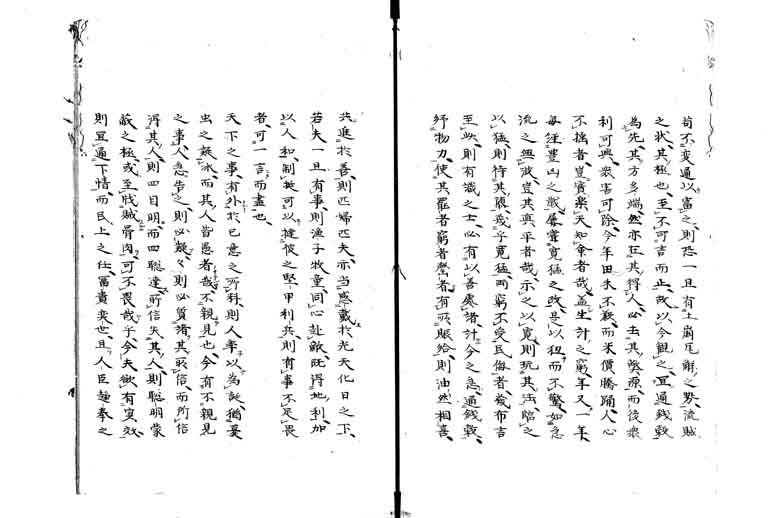 苟不変通以富之則恐一旦有土崩瓦解之勢流賊
之状其極也至不可言而止故以今観之宜通銭穀
為先其方多端然亦在其得人必去其弊源而後衆
利可興衆害可除今年田未不歉而米價騰踊人心
不揣者豈實楽天知命者哉蓋生計之窮年又一年
毎経豊山之戯屡嘗寛猛之政是以狃而不驚如急
流之無波豈其興平者哉示之以寛則玩其法臨之
以猛則恃其頑幾乎寛猛両窮不受民侮者幾布吉
至此則有識之士必有以善處諸計今之急通銭穀
紓物力使其罷者窮者煢者有所賑給則油然相喜
共進於善則匹婦匹夫亦当感戴於光天化日之下
若夫一旦有事則漁子牧童同心赴敵既得地利加
以人和制梃可以撻彼之堅甲利兵則有事不足畏
者可一言而盡也
天下之事有外於己意之所料則人率以為誕猶夏
虫之疑氷而其人皆愚者哉不親見也今有不親見
之事人急告之則必疑々則必質諸其所信而所信
得其人則四目明而四聡達所信失其人則聡明蒙
蔽之極或至戕賊骨肉可不畏哉乎今夫欲有実效
則宜通下情而民上之仕冨貴奕世且人臣趨奉之